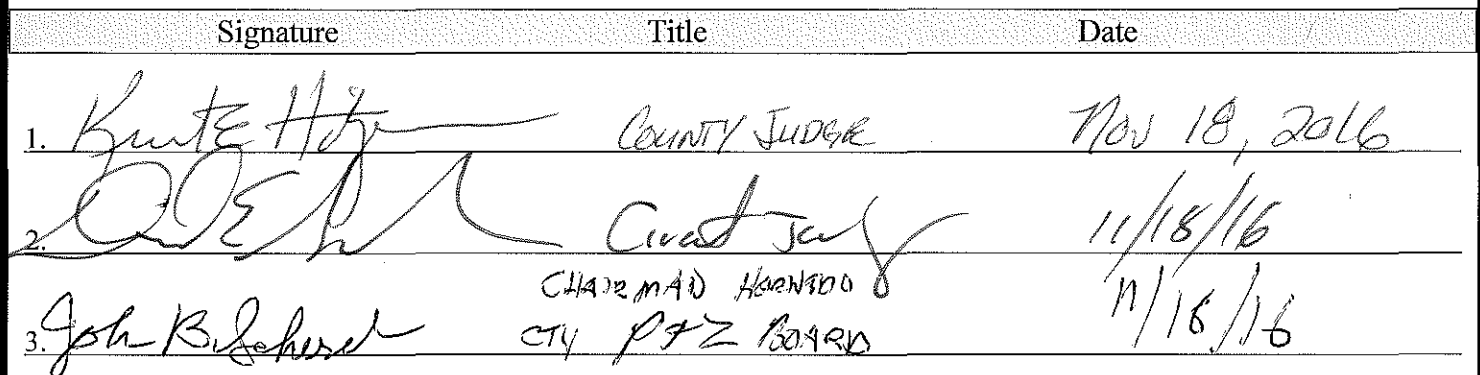 Signature Title Date
1. Kurt E H COUNTY JUDGE Nov 18, 2016
2. Circuit Judge 11/18/16
CHAIRMAN
3. John B. CTY P&Z BOARD 11/18/16